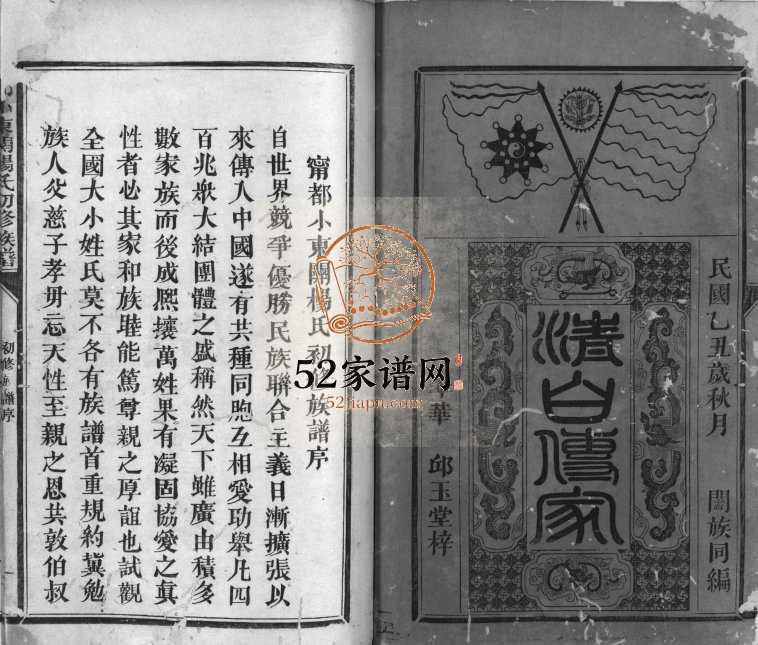 民國乙丑歲秋月　闔族同編
清白傳家
華　邱玉堂梓
甯都小東關楊氏初族譜序
自世界競爭優勝民族聯合主義日漸擴張以
來傳人中國遂有共種同胞互相愛助舉凡四
百兆眾大結團體之盛稱然天下雖廣由積多
數家族而後成熙壤萬姓果有凝固協愛之真
性者必其家和族睦能篤尊親之厚誼也試觀
全國大小姓氏莫不各有族譜首重規約冀勉
族人父慈子孝毋忘天性至親之恩共敦伯叔
東關楊氏初修族譜
初修族譜序
52家谱网
52jiapu.com